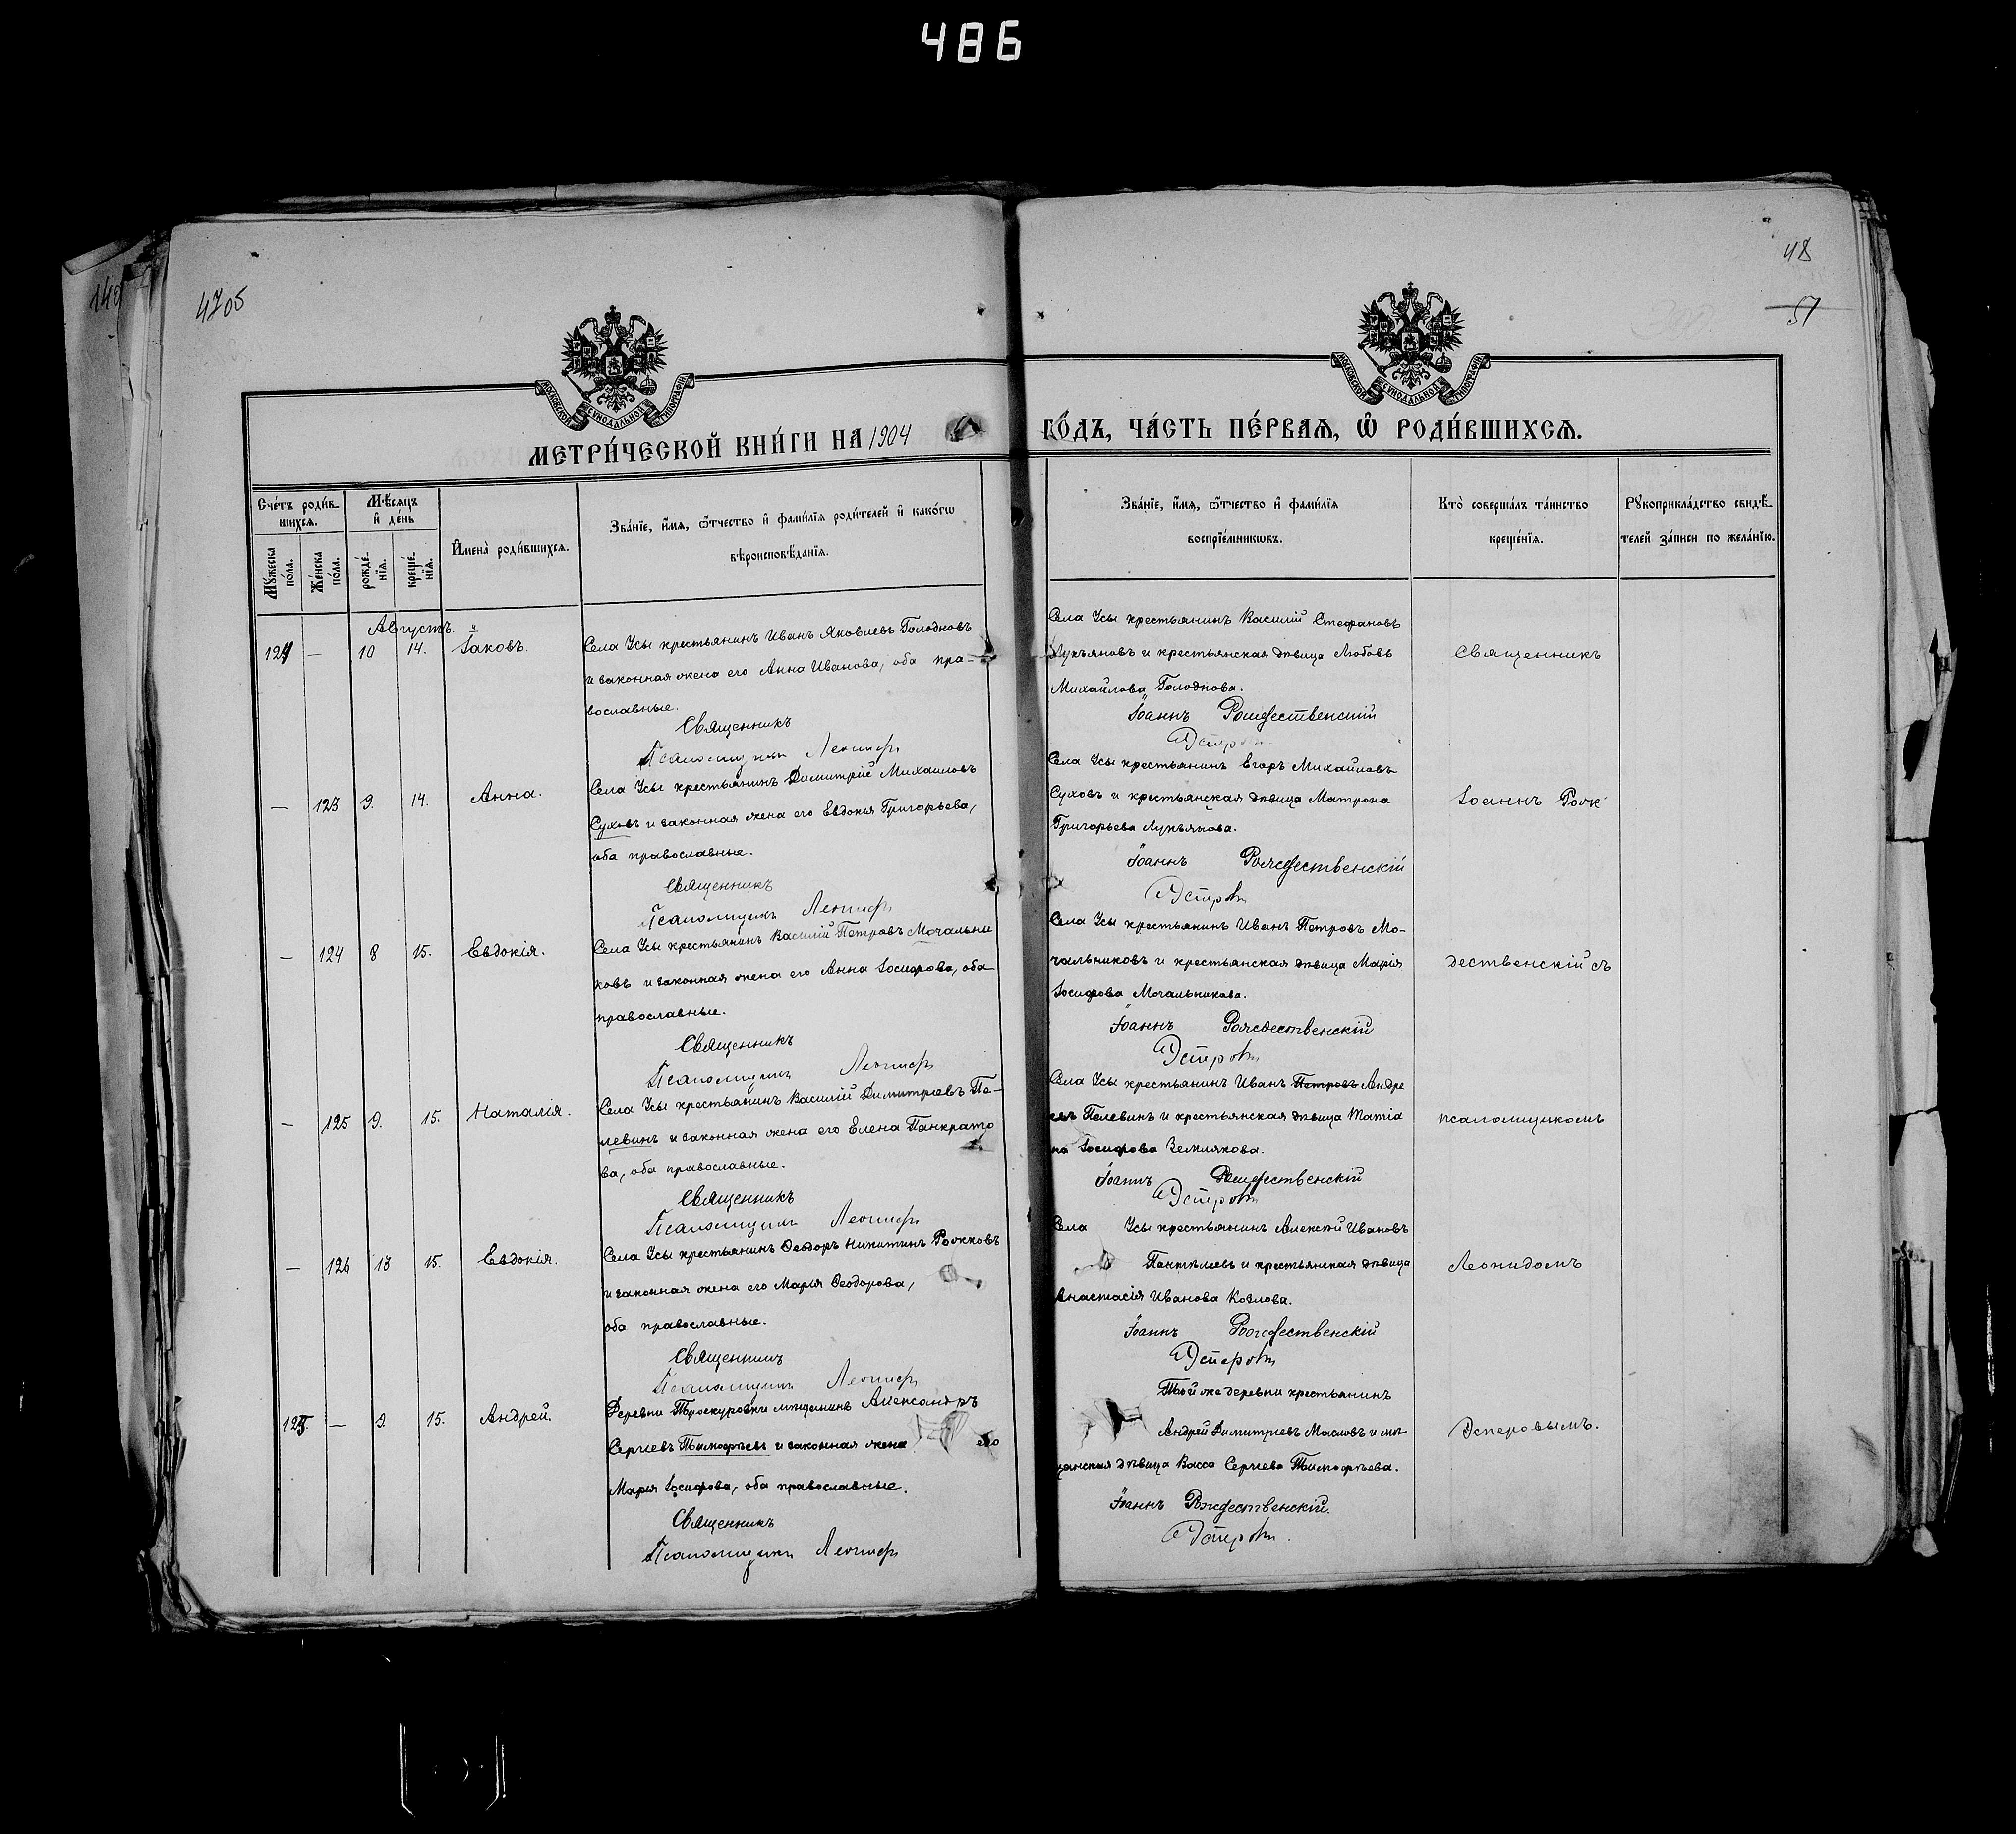 486
140
4705
48
57
МОСКОВСКОЙ СУНОДАЛЬНОЙ ТИПОГРАФІИ
МОСКОВСКОЙ СУНОДАЛЬНОЙ ТИПОГРАФІИ
МЕТРИ́ЧЕСКОЙ КНИ́ГИ НА 1904
ГО́ДЪ, ЧА́СТЬ ПЕ́РВАЯ, Ѡ҆ РОДИ́ВШИХСЯ.
Сче́тъ роди́вшихся.
Му́жеска по́ла.
Же́нска по́ла.
Мѣ́сяцъ и҆ де́нь
рожде́нїя.
креще́нїя.
И҆мена̀ роди́вшихся.
Зва́нїе, и҆́мя, ѻ҆́тчество и҆ фами́лїя роди́телей и҆ како́гѡ
вѣроисповѣ́данїя.
Зва́нїе, и҆́мя, ѻ҆́тчество и҆ фами́лїя
воспрїе́мникѡвъ.
Кто̀ соверша́лъ та́инство
креще́нїя.
Рꙋкоприкла́дство свидѣ́-
телей за́писи по жела́нїю.
Августъ.
124 — 10 14. Іаковъ.
Села Усы крестьянинъ Иванъ Яковлевъ Голодновъ
и законная жена его Анна Иванова, оба пра-
вославные.
Священникъ
Псаломщикъ Леонидъ
Села Усы крестьянинъ Василій Стефановъ
Лукъяновъ и крестьянская дѣвица Любовь
Михайлова Голоднова.
Іоаннъ Рождественскій
Эсперовъ
Священникъ
— 123 9. 14. Анна.
Села Усы крестьянинъ Димитрій Михаиловъ
Суховъ и законная жена его Евдокія Григорьева,
оба православные.
Священникъ
Псаломщикъ Леонидъ
Села Усы крестьянинъ Егоръ Михайловъ
Суховъ и крестьянская дѣвица Матрона
Григорьева Лукъянова.
Іоаннъ Рождественскій
Эсперовъ
Іоаннъ Рож-
— 124 8 15. Евдокія.
Села Усы крестьянинъ Василій Петровъ Мочальни
ковъ и законная жена его Анна Іосифова, оба
православные.
Священникъ
Псаломщикъ Леонидъ
Села Усы крестьянинъ Иванъ Петровъ Мо-
чальниковъ и крестьянская дѣвица Марія
Іосифова Мочальникова.
Іоаннъ Рождественскій
Эсперовъ
дественскій съ
— 125 9. 15. Наталія.
Села Усы крестьянинъ Василій Димитріевъ Пе-
левинъ и законная жена его Елена Панкрато
ва, оба православные.
Священникъ
Псаломщикъ Леонидъ
Села Усы крестьянинъ Иванъ Петровъ Андре
евъ Пелевинъ и крестьянская дѣвица Матіа
на Іосифова Землякова.
Іоаннъ Рождественскій
Эсперовъ
псаломщикомъ
— 126 13 15. Евдокія.
Села Усы крестьянинъ Ѳеодоръ Никитинъ Рожковъ
и законная жена его Марія Ѳеодорова,
оба православные.
Священникъ
Псаломщикъ Леонидъ
Села Усы крестьянинъ Алексѣй Ивановъ
Пантѣлеевъ и крестьянская дѣвица
Анастасія Иванова Козлова.
Іоаннъ Рождественскій
Эсперовъ
Леонидомъ
125. — 9 15. Андрей.
Деревни Проскуровки мѣщанинъ Александръ
Сергіевъ Тимофѣевъ и законная жена его
Марія Іосифова, оба православные.
Священникъ
Псаломщикъ Леонидъ
Той же деревни крестьянинъ
Андрей Димитріевъ Масловъ и мѣ
щанская дѣвица Васса Сергіева Тимофѣева.
Іоаннъ Рождественскій.
Эсперовъ.
Эсперовымъ.